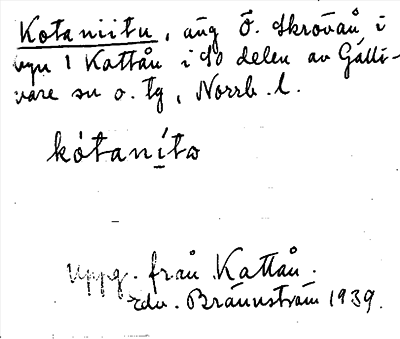 Kotaniitu, äng Ö. Skrövån i
byn 1 Kattån i So delen av Gälli-
vare sn o. tg, Norrb. l.
kȯtanị́tω
Uppg. från Kattån.
Edv. Brännström 1939.